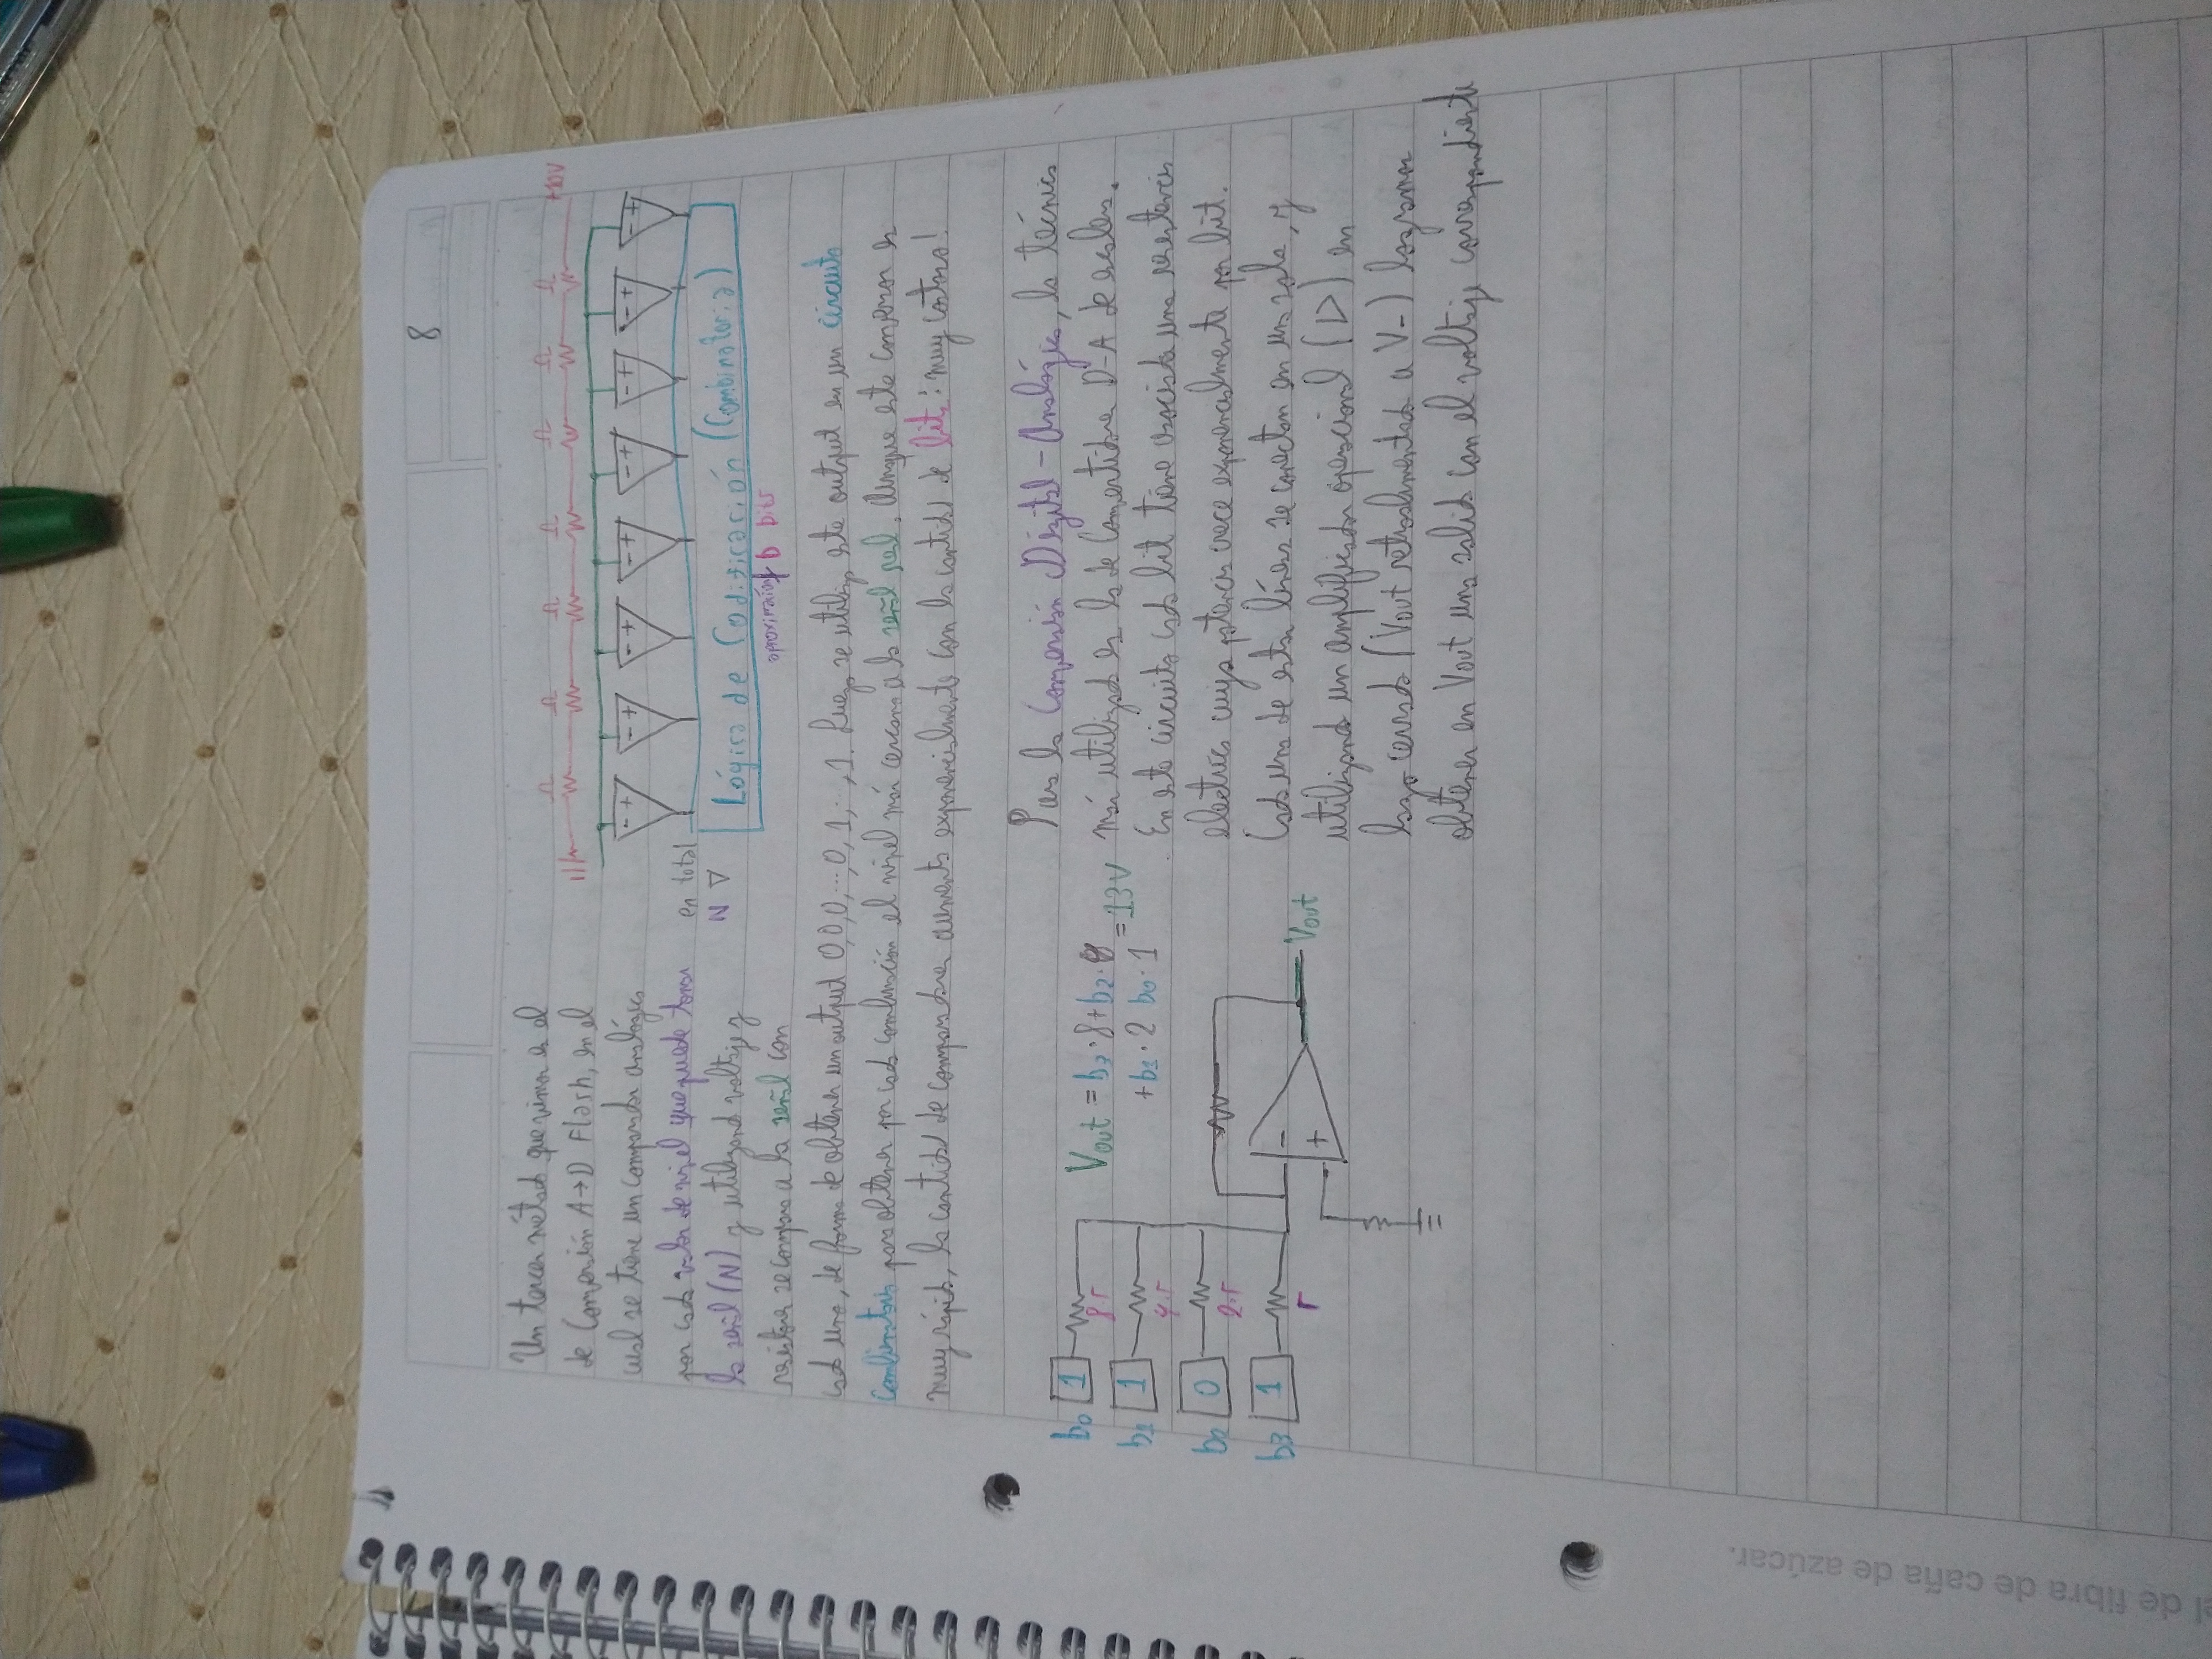 8
Un tercer método que vimos es el
de Conversión A→D Flash, en el
cual se tiene un comparador analógico
por cada valor de nivel que puede tomar
la señal (N) y utilizando voltaje y
resistores se compara a la señal con
cada uno, de forma de obtener un output 0,0,0,...,0,1,..,1. Luego se utiliza este output en un circuito
combinatorio para obtener por cada combinación el nivel más cercano a la señal real. Aunque este conversor es
muy rápido, la cantidad de comparadores aumenta exponencialmente con la cantidad de bits: muy costoso!
Ω Ω Ω Ω Ω Ω Ω
+10V
- + - + - + - + - + - + - + - +
en total
N ▽
Lógica de Codificación (Combinatoria)
aproximación q bits
b0 1
8r
b1 1
4.r
b2 0
2.r
b3 1
r
Vout = b3·8+b2·
+b1·2 b0·1
=13V
-
+
Vout
Para la Conversión Digital-Analógica, la técnica
más utilizada es la de Convertidores D-A de escalera.
En este circuito cada bit tiene asociada una resistencia
electrica cuya potencia crece exponencialmente por bit.
Cada una de estas líneas se conectan en una sola, y
utilizando un amplificador operacional (▷) en
lazo cerrado (Vout retroalimentado a V-) logramos
obtener en Vout una salida con el voltaje correspondiente
el de fibra de caña de azúcar.